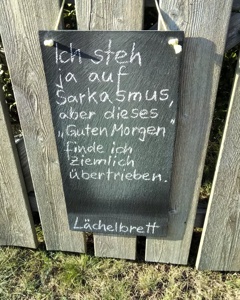 Ich steh
ja auf
Sarkasmus,
aber dieses
„Guten Morgen"
finde ich
ziemlich
übertrieben.
Lächelbrett